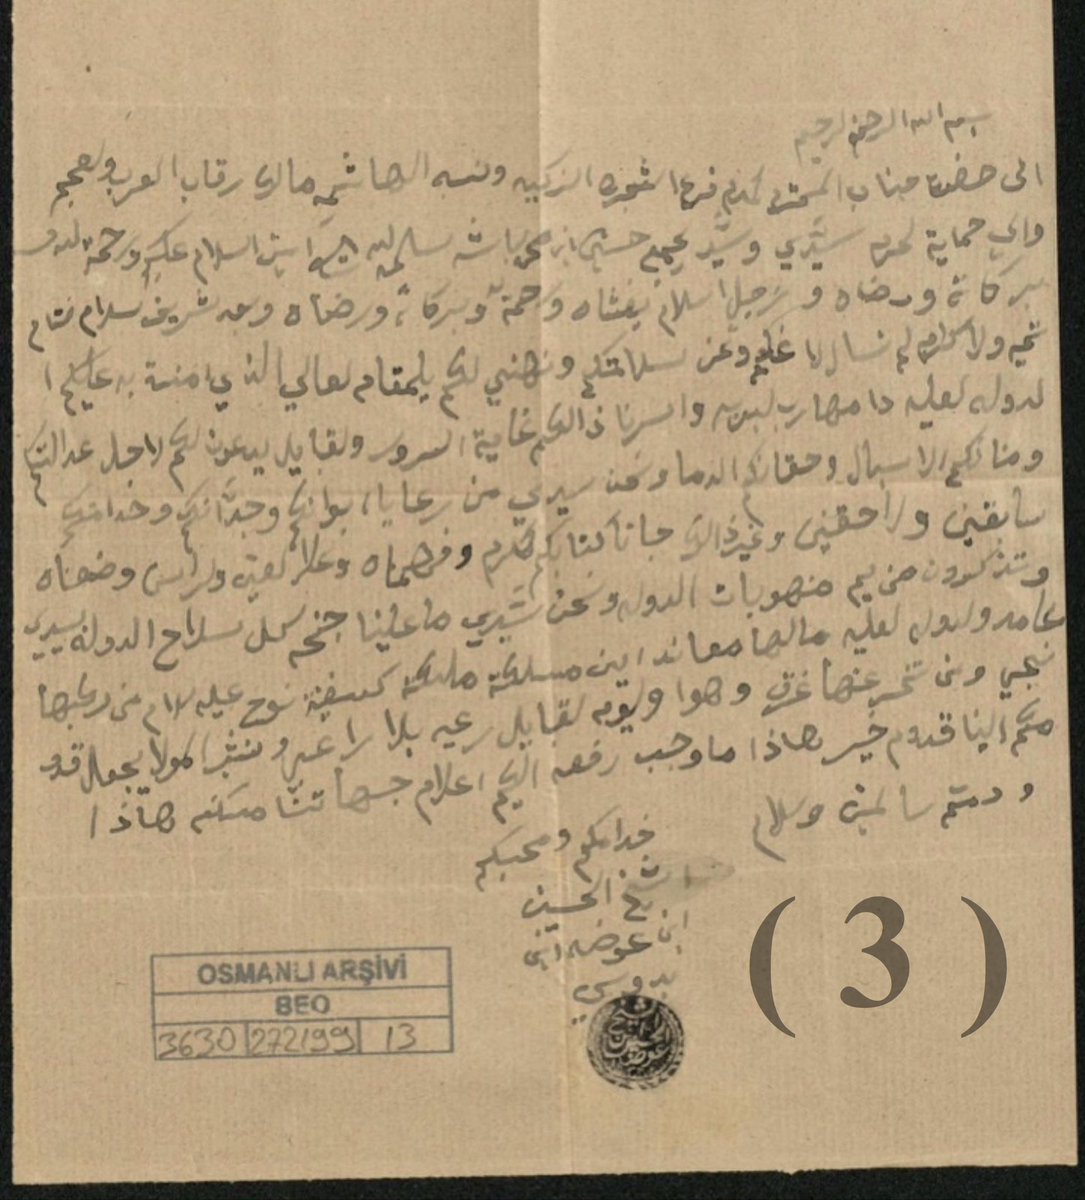 بسم الله الرحمن الرحيم
الى حضرة جناب المحترم لمكرم فرع الشجره الزكيه ونسبه الهاشميه مالك رقاب العرب ولعجم
والي حماية لحرم سيدي وسيد لجميع حسين ابن باشه سلمه الله السلام عليكم ورحمة الله
بركاته ورضاه وجليل اسلام يغشاه ورحمة وبركاته ورضاه وبعد شريف سلام تام
تحيه ولاكرام لم نسال الا عنكم وعن سلامتكم ونهني لكم بلمقام لعالي الذي امنة به عليكم ا
لدوله لعليه واسرنا ذالكم غاية السرور ولقبايل يدعون لكم لاجل عدالتكم
الاسبال وحقانكم الدما ونحن سيدي من رعايا ابوانكم وجدانكم وخدامكم
سابقين ولاحقين وغير ذالك جانا كتابكم لكرم وفهمناه وعلا لعين ولراس وضعناه
وتذكرون من يم منهوبات الدوله ونحن سيدي ما علينا جنح كمل سلاح الدوله سيدي
عامد ولدوله لعليه مالها معاند اين مسلكة ملكة كسفينة نوح عليه لسلام من ركبها
نجي ومن تخر عنها غرق وهوا وليوم لقبايل رعيه بلا راعي لمولا يجعل قدو
مكم الينا قدوم خير هاذا ما وجب رفعه اليكم اعلام هاذا
ودمتم سالمين وسلام
خدامكم ومحبكم
الشيخ الحسين
ابن عوضه ابن
OSMANLI ARŞİVİ
BEO
3630 272199 13
( 3 )